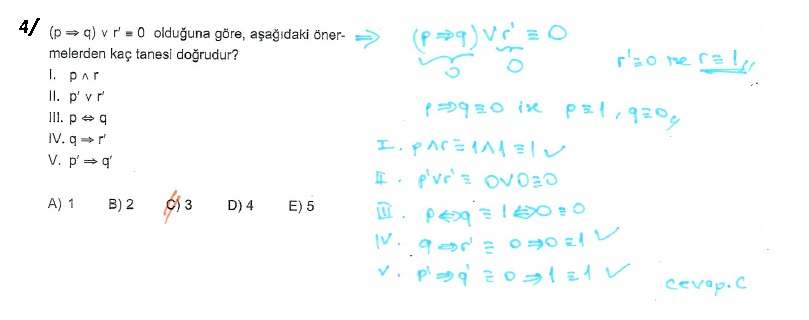 4/ (p ⇒ q) ∨ r' ≡ 0 olduğuna göre, aşağıdaki öner-
melerden kaç tanesi doğrudur?
I. p ∧ r
II. p' ∨ r'
III. p ⇔ q
IV. q ⇒ r'
V. p' ⇒ q'
A) 1 B) 2 C) 3 D) 4 E) 5
⇒ (p ⇒ q) ∨ r' ≡ 0
0 0
r' ≡ 0 ise r ≡ 1,,
p ⇒ q ≡ 0 ise p ≡ 1, q ≡ 0,,
I. p ∧ r ≡ 1 ∧ 1 ≡ 1 ✓
II. p' ∨ r' ≡ 0 ∨ 0 ≡ 0
III. p ⇔ q ≡ 1 ⇔ 0 ≡ 0
IV. q ⇒ r' ≡ 0 ⇒ 0 ≡ 1 ✓
V. p' ⇒ q' ≡ 0 ⇒ 1 ≡ 1 ✓
cevap. C